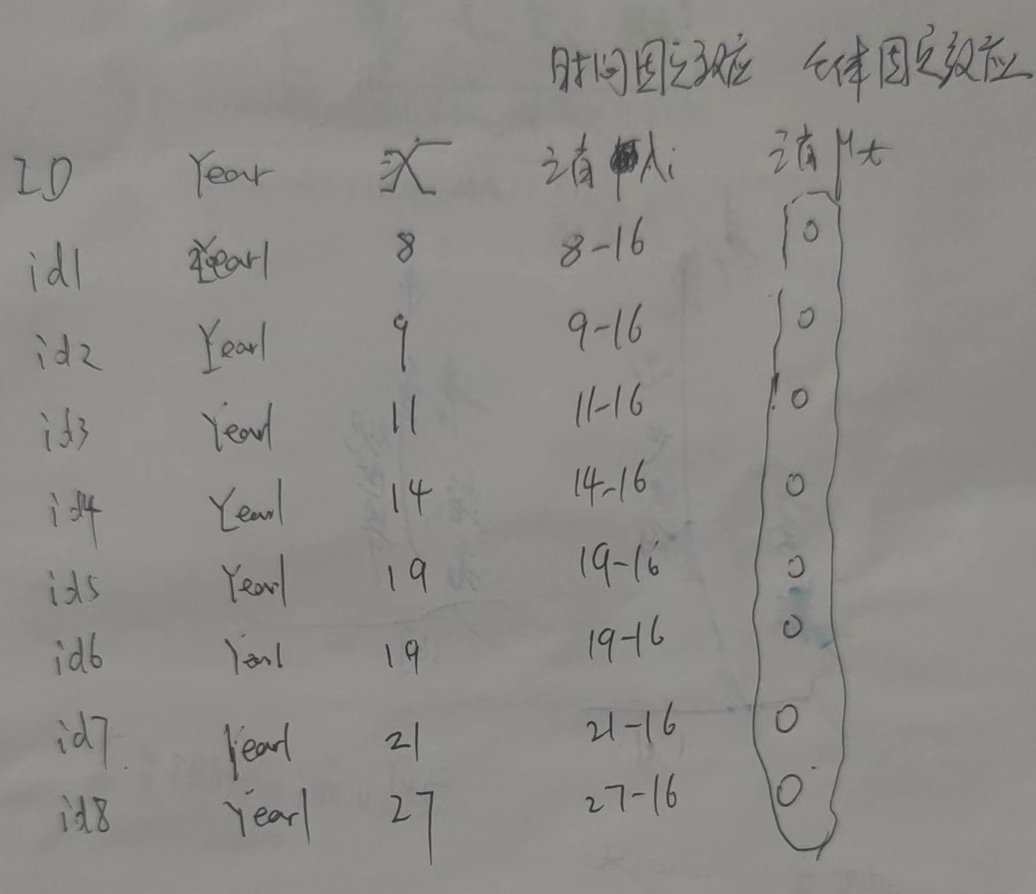 时间固定效应 个体固定效应
ID Year X 消 λi 消 μt
id1 Year1 8 8-16 0
id2 Year1 9 9-16 0
id3 Year1 11 11-16 0
id4 Year1 14 14-16 0
id5 Year1 19 19-16 0
id6 Year1 19 19-16 0
id7 Year1 21 21-16 0
id8 Year1 27 27-16 0